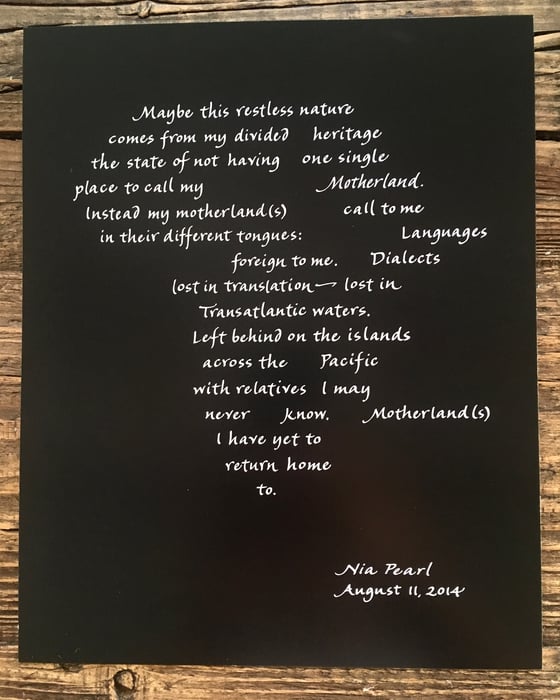 Maybe this restless nature
comes from my divided heritage
the state of not having one single
place to call my Motherland.
Instead my motherland(s) call to me
in their different tongues: Languages
foreign to me. Dialects
lost in translation— lost in
Transatlantic waters.
Left behind on the islands
across the Pacific
with relatives I may
never know. Motherland(s)
I have yet to
return home
to.
Nia Pearl
August 11, 2014